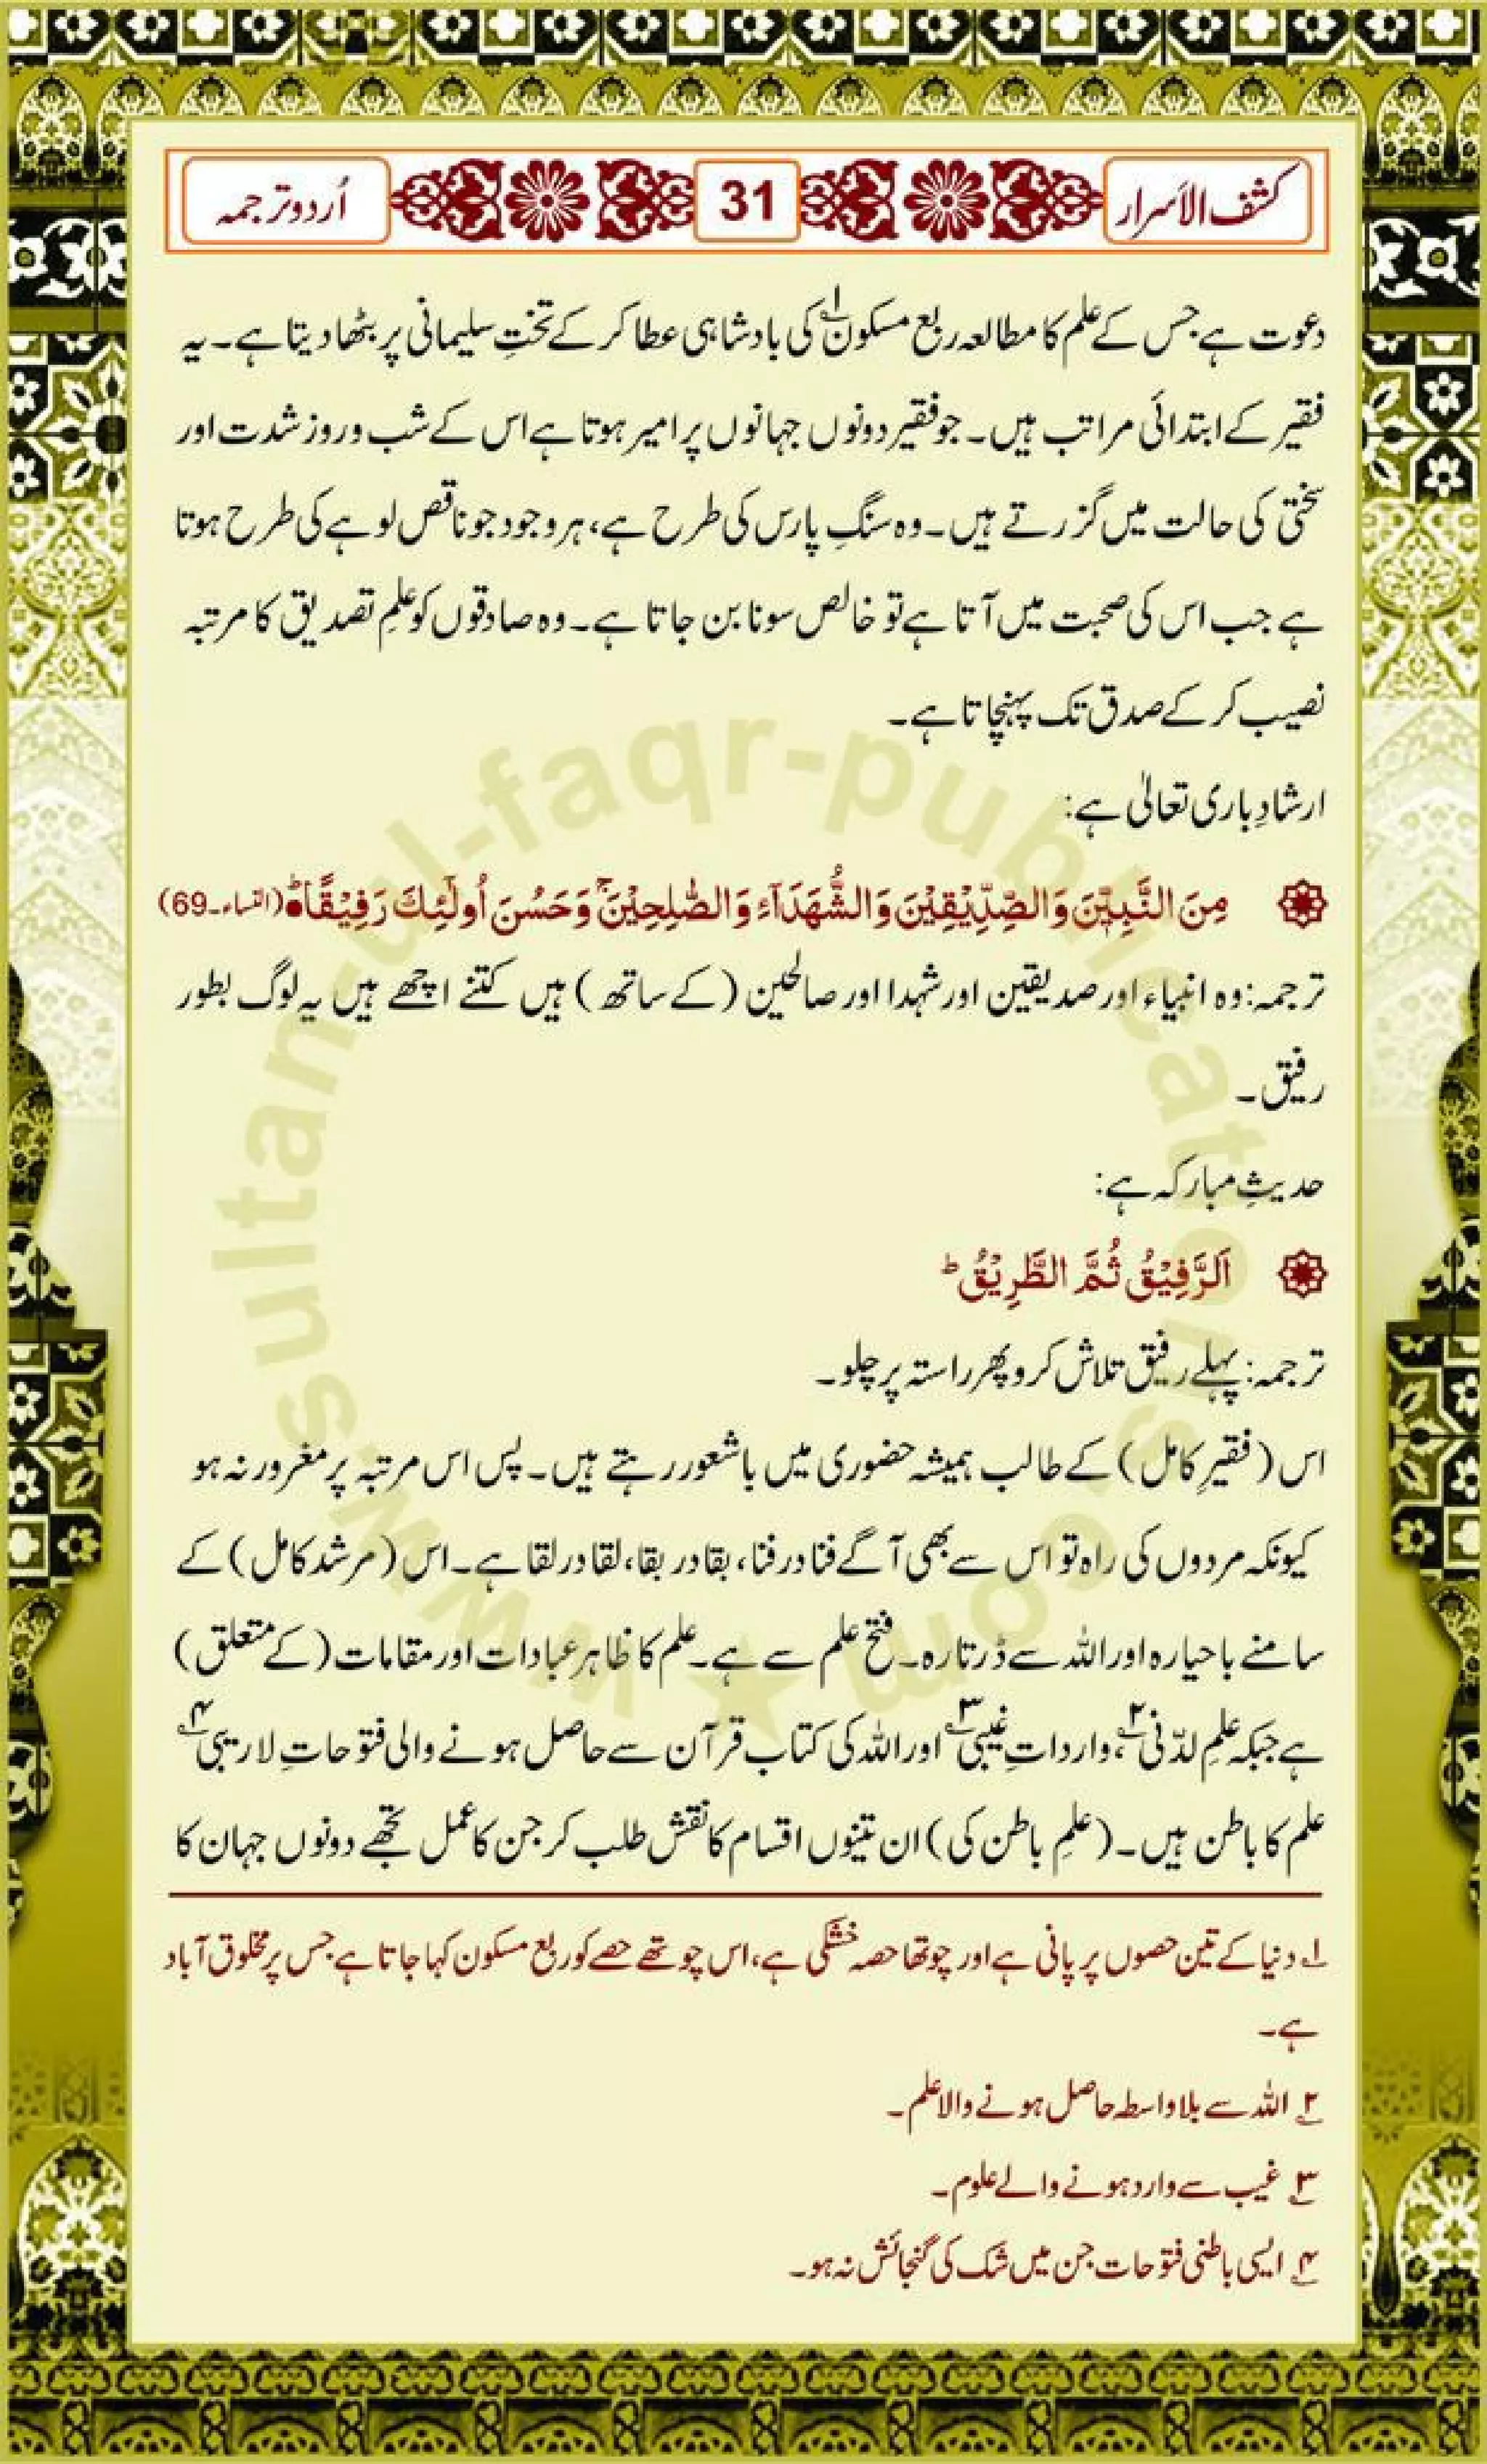 کشف الاَسرار
31
اُردو ترجمہ
دعوت ہے جس کے علم کا مطالعہ ربع مسکون۱ کی بادشاہی عطا کر کے تختِ سلیمانی پر بٹھا دیتا ہے۔ یہ
فقیر کے ابتدائی مراتب ہیں۔ جو فقیر دونوں جہانوں پر امیر ہوتا ہے اس کے شب و روز شدت اور
سختی کی حالت میں گزرتے ہیں۔ وہ سنگِ پارس کی طرح ہے، ہر وجود جو ناقص لوہے کی طرح ہوتا
ہے جب اس کی صحبت میں آتا ہے تو خالص سونا بن جاتا ہے۔ وہ صادقوں کو علمِ تصدیق کا مرتبہ
نصیب کر کے صدق تک پہنچاتا ہے۔
ارشادِ باری تعالیٰ ہے:
مِنَ النَّبِیّٖنَ وَ الصِّدِّیْقِیْنَ وَ الشُّھَدَآءِ وَ الصّٰلِحِیْنَ ۚ وَ حَسُنَ اُولٰٓئِكَ رَفِیْقًا ؕ (النساء۔69)
ترجمہ: وہ انبیاء اور صدیقین اور شہدا اور صالحین (کے ساتھ) ہیں کتنے اچھے ہیں یہ لوگ بطور
رفیق۔
حدیثِ مبارکہ ہے:
اَلرَّفِیْقُ ثُمَّ الطَّرِیْقُ ؕ
ترجمہ: پہلے رفیق تلاش کرو پھر راستہ پر چلو۔
اس (فقیرِ کامل) کے طالب ہمیشہ حضوری میں باشعور رہتے ہیں۔ پس اس مرتبہ پر مغرور نہ ہو
کیونکہ مردوں کی راہ تو اس سے بھی آگے فنا در فنا، بقا در بقا، لقا در لقا ہے۔ اس (مرشد کامل) کے
سامنے باحیا رہ اور اللہ سے ڈرتا رہ۔ فتح علم سے ہے۔ علم کا ظاہر عبادات اور مقامات (کے متعلق)
ہے جبکہ علمِ لدّنی۲، وارداتِ غیبی۳ اور اللہ کی کتاب قرآن سے حاصل ہونے والی فتوحاتِ لاریبی۴
علم کا باطن ہیں۔ (علمِ باطن کی) ان تینوں اقسام کا نقش طلب کر جن کا عمل تجھے دونوں جہان کا
۱ دنیا کے تین حصوں پر پانی ہے اور چوتھا حصہ خشکی ہے، اس چوتھے حصے کو ربع مسکون کہا جاتا ہے جس پر مخلوق آباد
ہے۔
۲ اللہ سے بلاواسطہ حاصل ہونے والا علم۔
۳ غیب سے وارد ہونے والے علوم۔
۴ ایسی باطنی فتوحات جن میں شک کی گنجائش نہ ہو۔
www.sultan-ul-faqr-publications.com